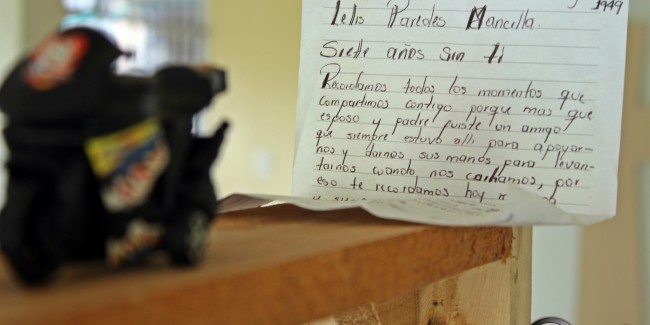 1949
Lelis Paredes Mancilla.
Siete años sin ti
Recordamos todos los momentos que
compartimos contigo porque mas que
esposo y padre fuiste un amigo
que siempre estuvo alli para apoyar-
nos y darnos sus manos para levan-
tarnos cuando nos caihamos, por
eso te recordamos hoy